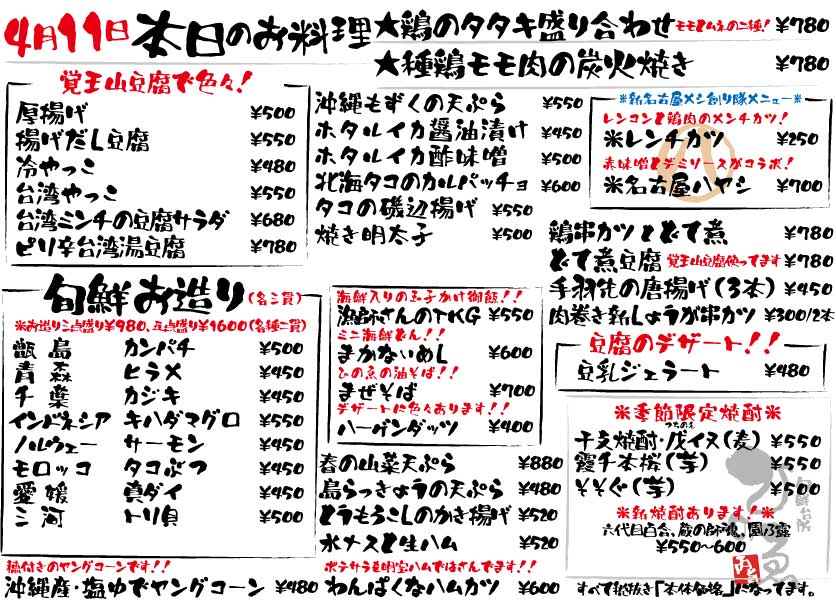 4月11日 本日のお料理
★鶏のタタキ盛り合わせ モモとムネの二種! ¥780
★種鶏モモ肉の炭火焼き ¥780
覚王山豆腐で色々!
厚揚げ ¥500
揚げだし豆腐 ¥550
冷やっこ ¥480
台湾やっこ ¥550
台湾ミンチの豆腐サラダ ¥680
ピリ辛台湾湯豆腐 ¥780
沖縄もずくの天ぷら ¥550
ホタルイカ醤油漬け ¥450
ホタルイカ酢味噌 ¥500
北海タコのカルパッチョ ¥600
タコの磯辺揚げ ¥550
焼き明太子 ¥500
※新名古屋メシ創り隊メニュー※
レンコンと鶏肉のメンチカツ!
※レンチカツ ¥250
赤味噌とデミソースがコラボ!
※名古屋ハヤシ ¥700
鶏串カツとどて煮 ¥780
どて煮豆腐 覚王山豆腐使ってます ¥780
手羽先の唐揚げ(3本) ¥450
肉巻き新しょうが串カツ ¥300/2本
旬鮮お造り(各三貫)
※お造り三点盛り¥980、五点盛り¥1600(各種二貫)
甑島 カンパチ ¥500
青森 ヒラメ ¥450
千葉 カジキ ¥450
インドネシア キハダマグロ ¥550
ノルウェー サーモン ¥450
モロッコ タコぶつ ¥450
愛媛 真ダイ ¥450
三河 トリ貝 ¥500
海鮮入りの玉子かけ御飯!!
漁師さんのTKG ¥550
ミニ海鮮どん!!
まかないめし ¥600
ひの魚の油そば!!
まぜそば ¥700
デザートに色々あります!!
ハーゲンダッツ ¥400
豆腐のデザート!!
豆乳ジェラート ¥480
春の山菜天ぷら ¥880
島らっきょうの天ぷら ¥480
とうもろこしのかき揚げ ¥520
水ナスと生ハム ¥520
※季節限定焼酎※
つちのえ
干支焼酎・戊イヌ(麦) ¥550
霞千本桜(芋) ¥550
そそぐ(芋) ¥500
※新焼酎あります!※
六代目百合、蔵の師魂、園乃露
¥550~600
穂付きのヤングコーンです!
沖縄産・塩ゆでヤングコーン ¥480
ポテサラを明宝ハムではさんでます!
わんぱくなハムカツ ¥600
すべて税抜き「本体価格」になってます。